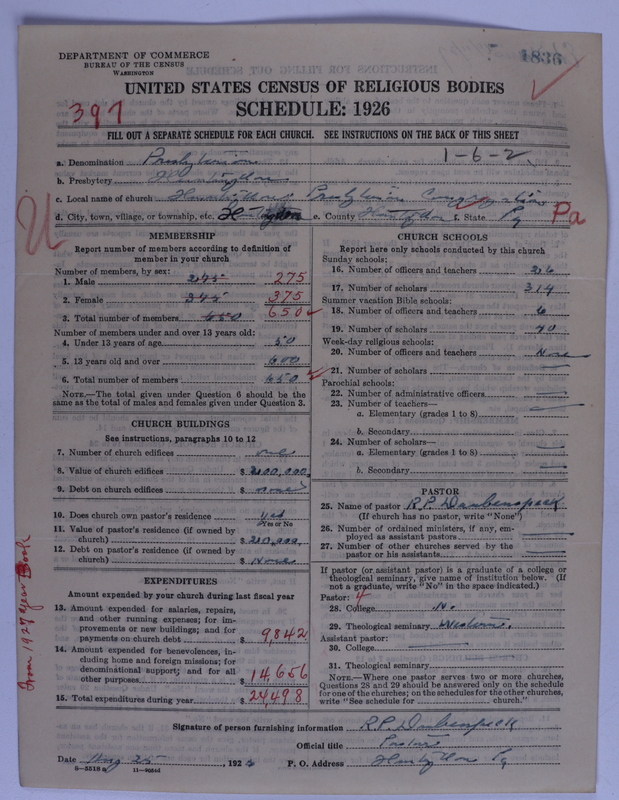 1836
DEPARTMENT OF COMMERCE
BUREAU OF THE CENSUS
WASHINGTON
UNITED STATES CENSUS OF RELIGIOUS BODIES
397
SCHEDULE: 1926
FILL OUT A SEPARATE SCHEDULE FOR EACH CHURCH. SEE INSTRUCTIONS ON THE BACK OF THIS SHEET
1-6-2
a. Denomination Presbyterian
b. Presbytery Huntingdon
c. Local name of church Huntingdon Presbyterian Congregation
d. City, town, village, or township, etc. Huntingdon e. County Huntingdon f. State Pa Pa
MEMBERSHIP
Report number of members according to definition of
member in your church
Number of members, by sex:
1. Male 275 275
2. Female 375 375
3. Total number of members 650 650
Number of members under and over 13 years old:
4. Under 13 years of age 50
5. 13 years old and over 600
6. Total number of members 650
NOTE.—The total given under Question 6 should be
same as the total of males and females given under Question 3.
CHURCH BUILDINGS
See instructions, paragraphs 10 to 12
7. Number of church edifices one
8. Value of church edifices $ 200,000.
9. Debt on church edifices $ none
10. Does church own pastor's residence Yes
Yes or No
11. Value of pastor's residence (if owned by
church) $ 20,000.
12. Debt on pastor's residence (if owned by
church) $ None
EXPENDITURES
Amount expended by your church during last fiscal year
13. Amount expended for salaries, repairs,
and other running expenses; for im-
provements or new buildings; and for
payments on church debt $ 9,842
14. Amount expended for benevolences, in-
cluding home and foreign missions; for
denominational support; and for all
other purposes $ 14,656
15. Total expenditures during year $ 24498
from 1927 Year Book
CHURCH SCHOOLS
Report here only schools conducted by this church
Sunday schools:
16. Number of officers and teachers 26
17. Number of scholars 314
Summer vacation Bible schools:
18. Number of officers and teachers 6
19. Number of scholars 40
Week-day religious schools:
20. Number of officers and teachers None
21. Number of scholars
Parochial schools:
22. Number of administrative officers
23. Number of teachers—
a. Elementary (grades 1 to 8)
b. Secondary
24. Number of scholars—
a. Elementary (grades 1 to 8)
b. Secondary
PASTOR
25. Name of pastor R.P. Daubenspeck
(If church has no pastor, write "None")
26. Number of ordained ministers, if any, em-
ployed as assistant pastors
27. Number of other churches served by the
pastor or his assistants
If pastor (or assistant pastor) is a graduate of a college or
theological seminary, give name of institution below. (If
not a graduate, write "No" in the space indicated.)
Pastor: 4
28. College No
29. Theological seminary Western.
Assistant pastor:
30. College
31. Theological seminary
NOTE.—Where one pastor serves two or more churches,
Questions 28 and 29 should be answered only on the schedule
for one of the churches; on the schedules for the other churches,
write "See schedule for church."
Signature of person furnishing information R.P. Daubenspeck
Official title Pastor
Date Aug 25, 1926 P. O. Address Huntingdon Pa
8-5518a 11-9054d